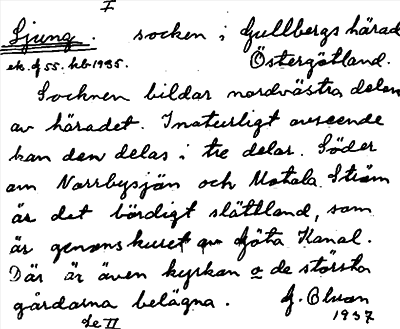 I
Ljung. socken i Gullbergs härad
ek. f 55. hb 1935. Östergötland.
Socknen bildar nordvästra delen
av häradet. I naturligt avseende
kan den delas i tre delar. Söder
om Norrbysjön och Motala Ström
är det bördigt slättland, som
är genomskuret av Göta Kanal.
Där är även kyrkan o de största
gårdarna belägna.
1937
Se II